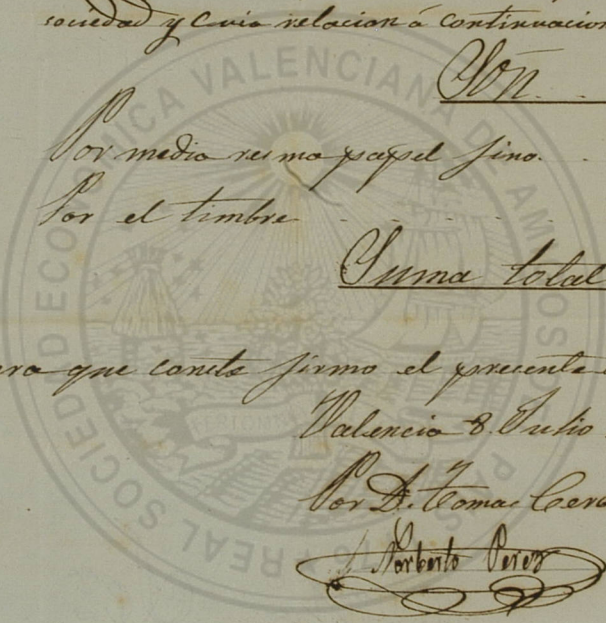 sociedad y cuia relacion á continuacion
Són
Por media resma papel fino.
Por el timbre
Suma total
ara que conste firmo el presente
Valencia 8 Julio
Por D. Tomas
Norberto Perez
REAL SOCIEDAD ECONÓMICA VALENCIANA DE AMIGOS